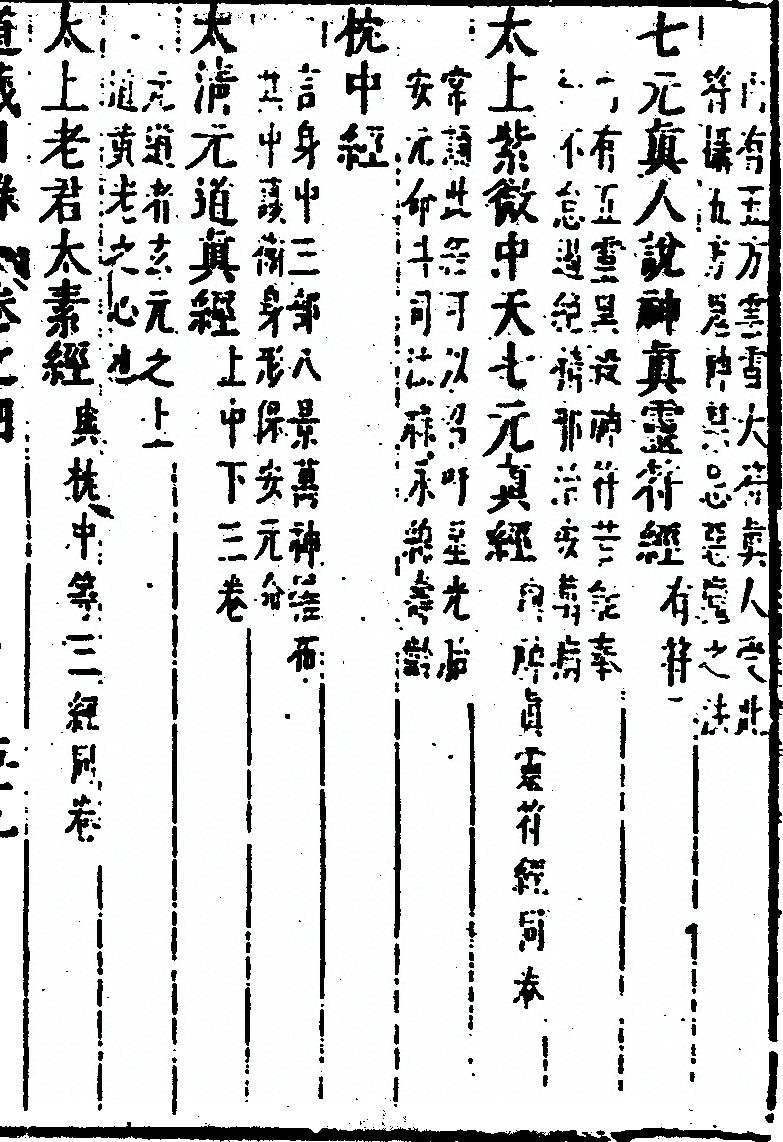 內有五方雲雷大符真人受此
符攝九方惡神禁忌惡鬼之法
七元真人說神真靈符經 有符
有五靈呈設神符若能奉
不怠過絕禱邪治安萬病
太上紫微中天七元真經 與神真靈符經同卷
常誦此經可以召呼星光
安元命斗司法錄永錫壽齡
枕中經
言身中三部八景萬神羅布
其中護衛身形保安元命
太清元道真經 上中下三卷
元道者玄元之上
道黃老之心也
太上老君太素經 與枕中等三經同卷
道藏目錄 卷之四